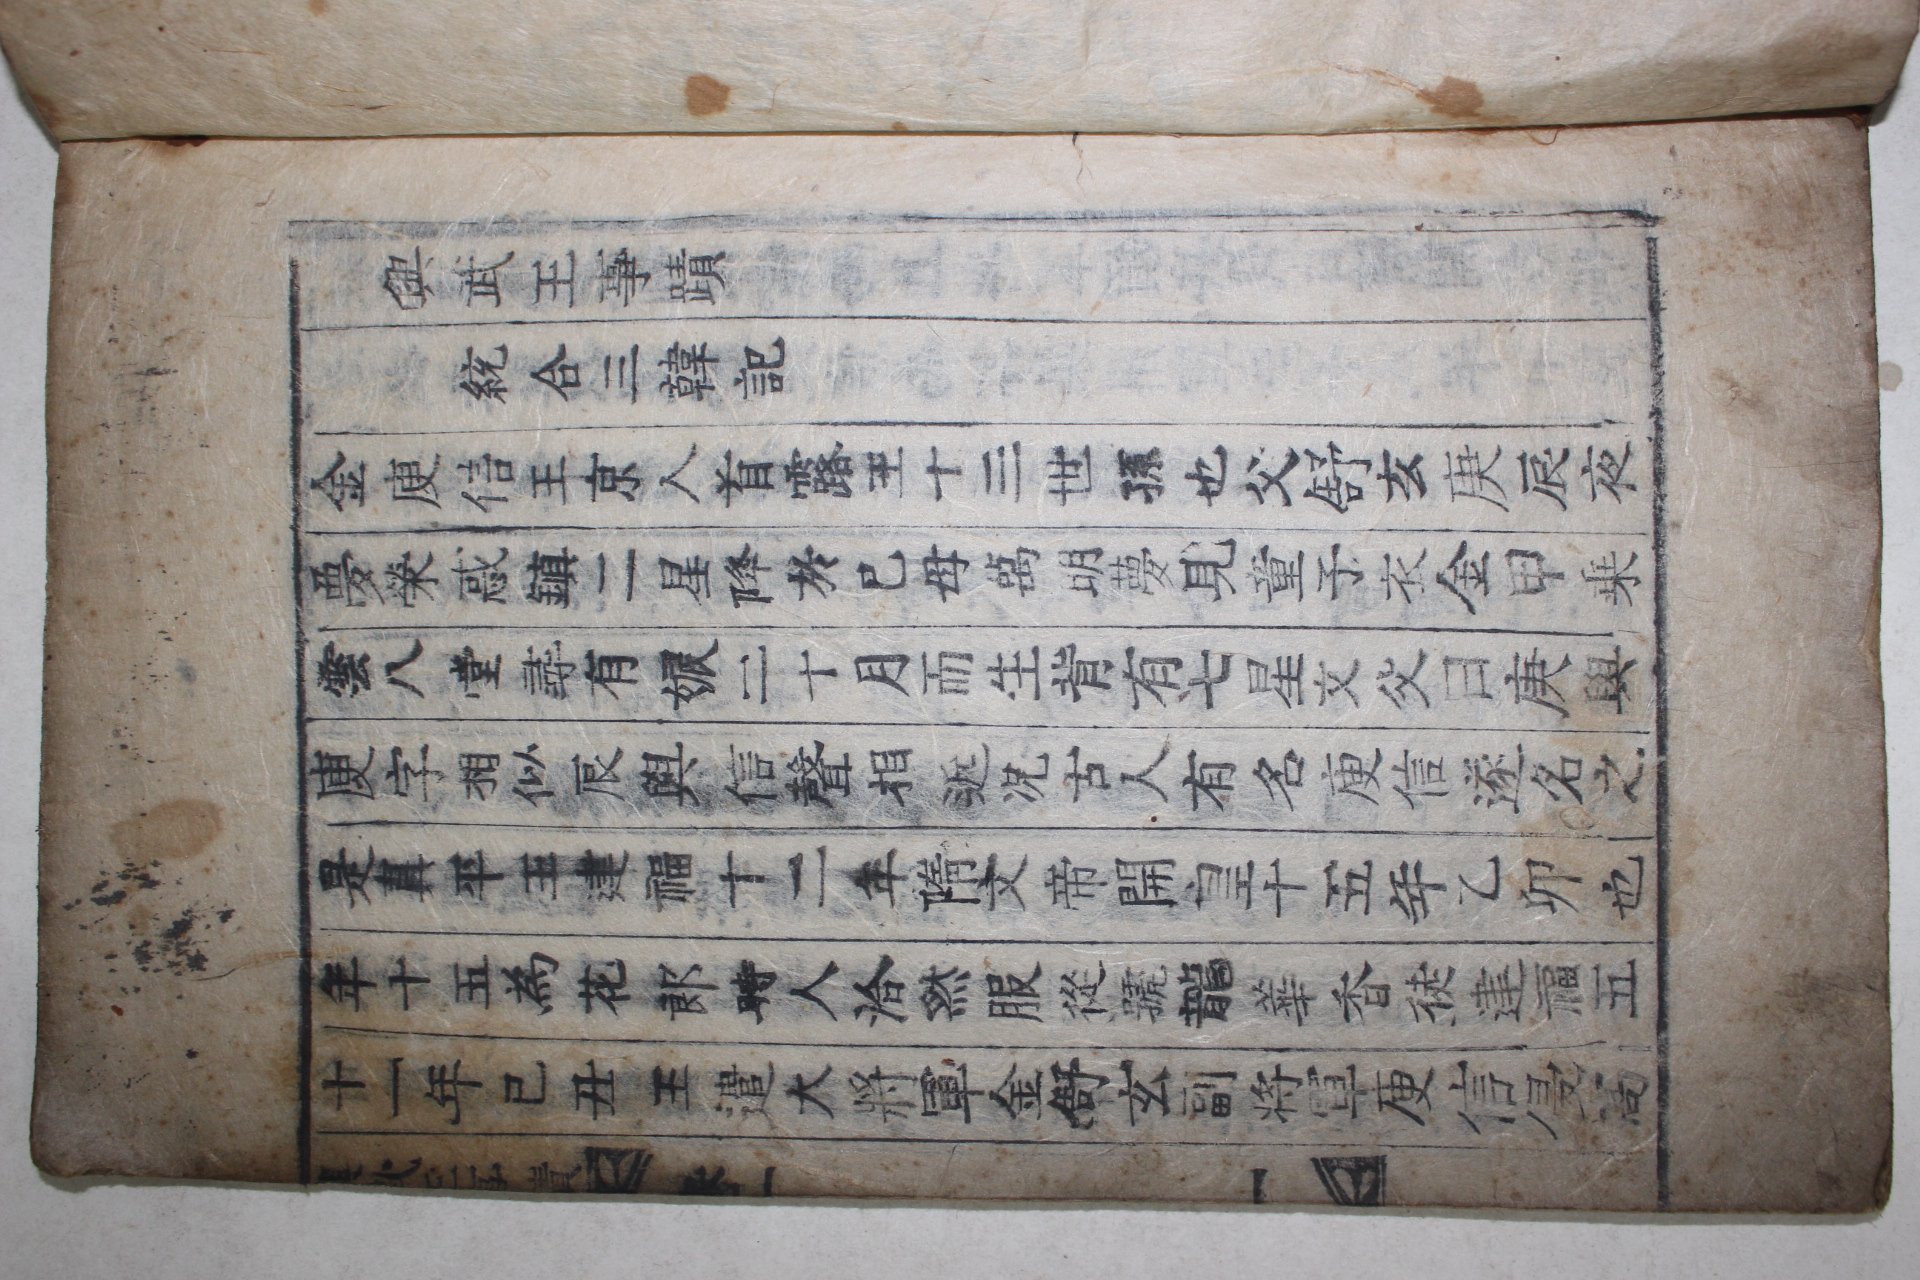 興武王事蹟
統合三韓記
金庾信王京人首露王十三世孫也父舒玄庚辰夜
夢熒惑鎮二星降於已母萬明夢見童子衣金甲乘
雲入堂尋有娠二十月而生背有七星文父曰庚與
庾字相似辰與信聲相近况古人有名庾信遂名之
是真平王建福十二年隋文帝開皇十五年乙卯也
年十五為花郎時人洽然服從號龍華香徒建福五
十一年已丑王遣大將軍金舒玄副將軍庾信侵高
興武王事蹟 卷一 一